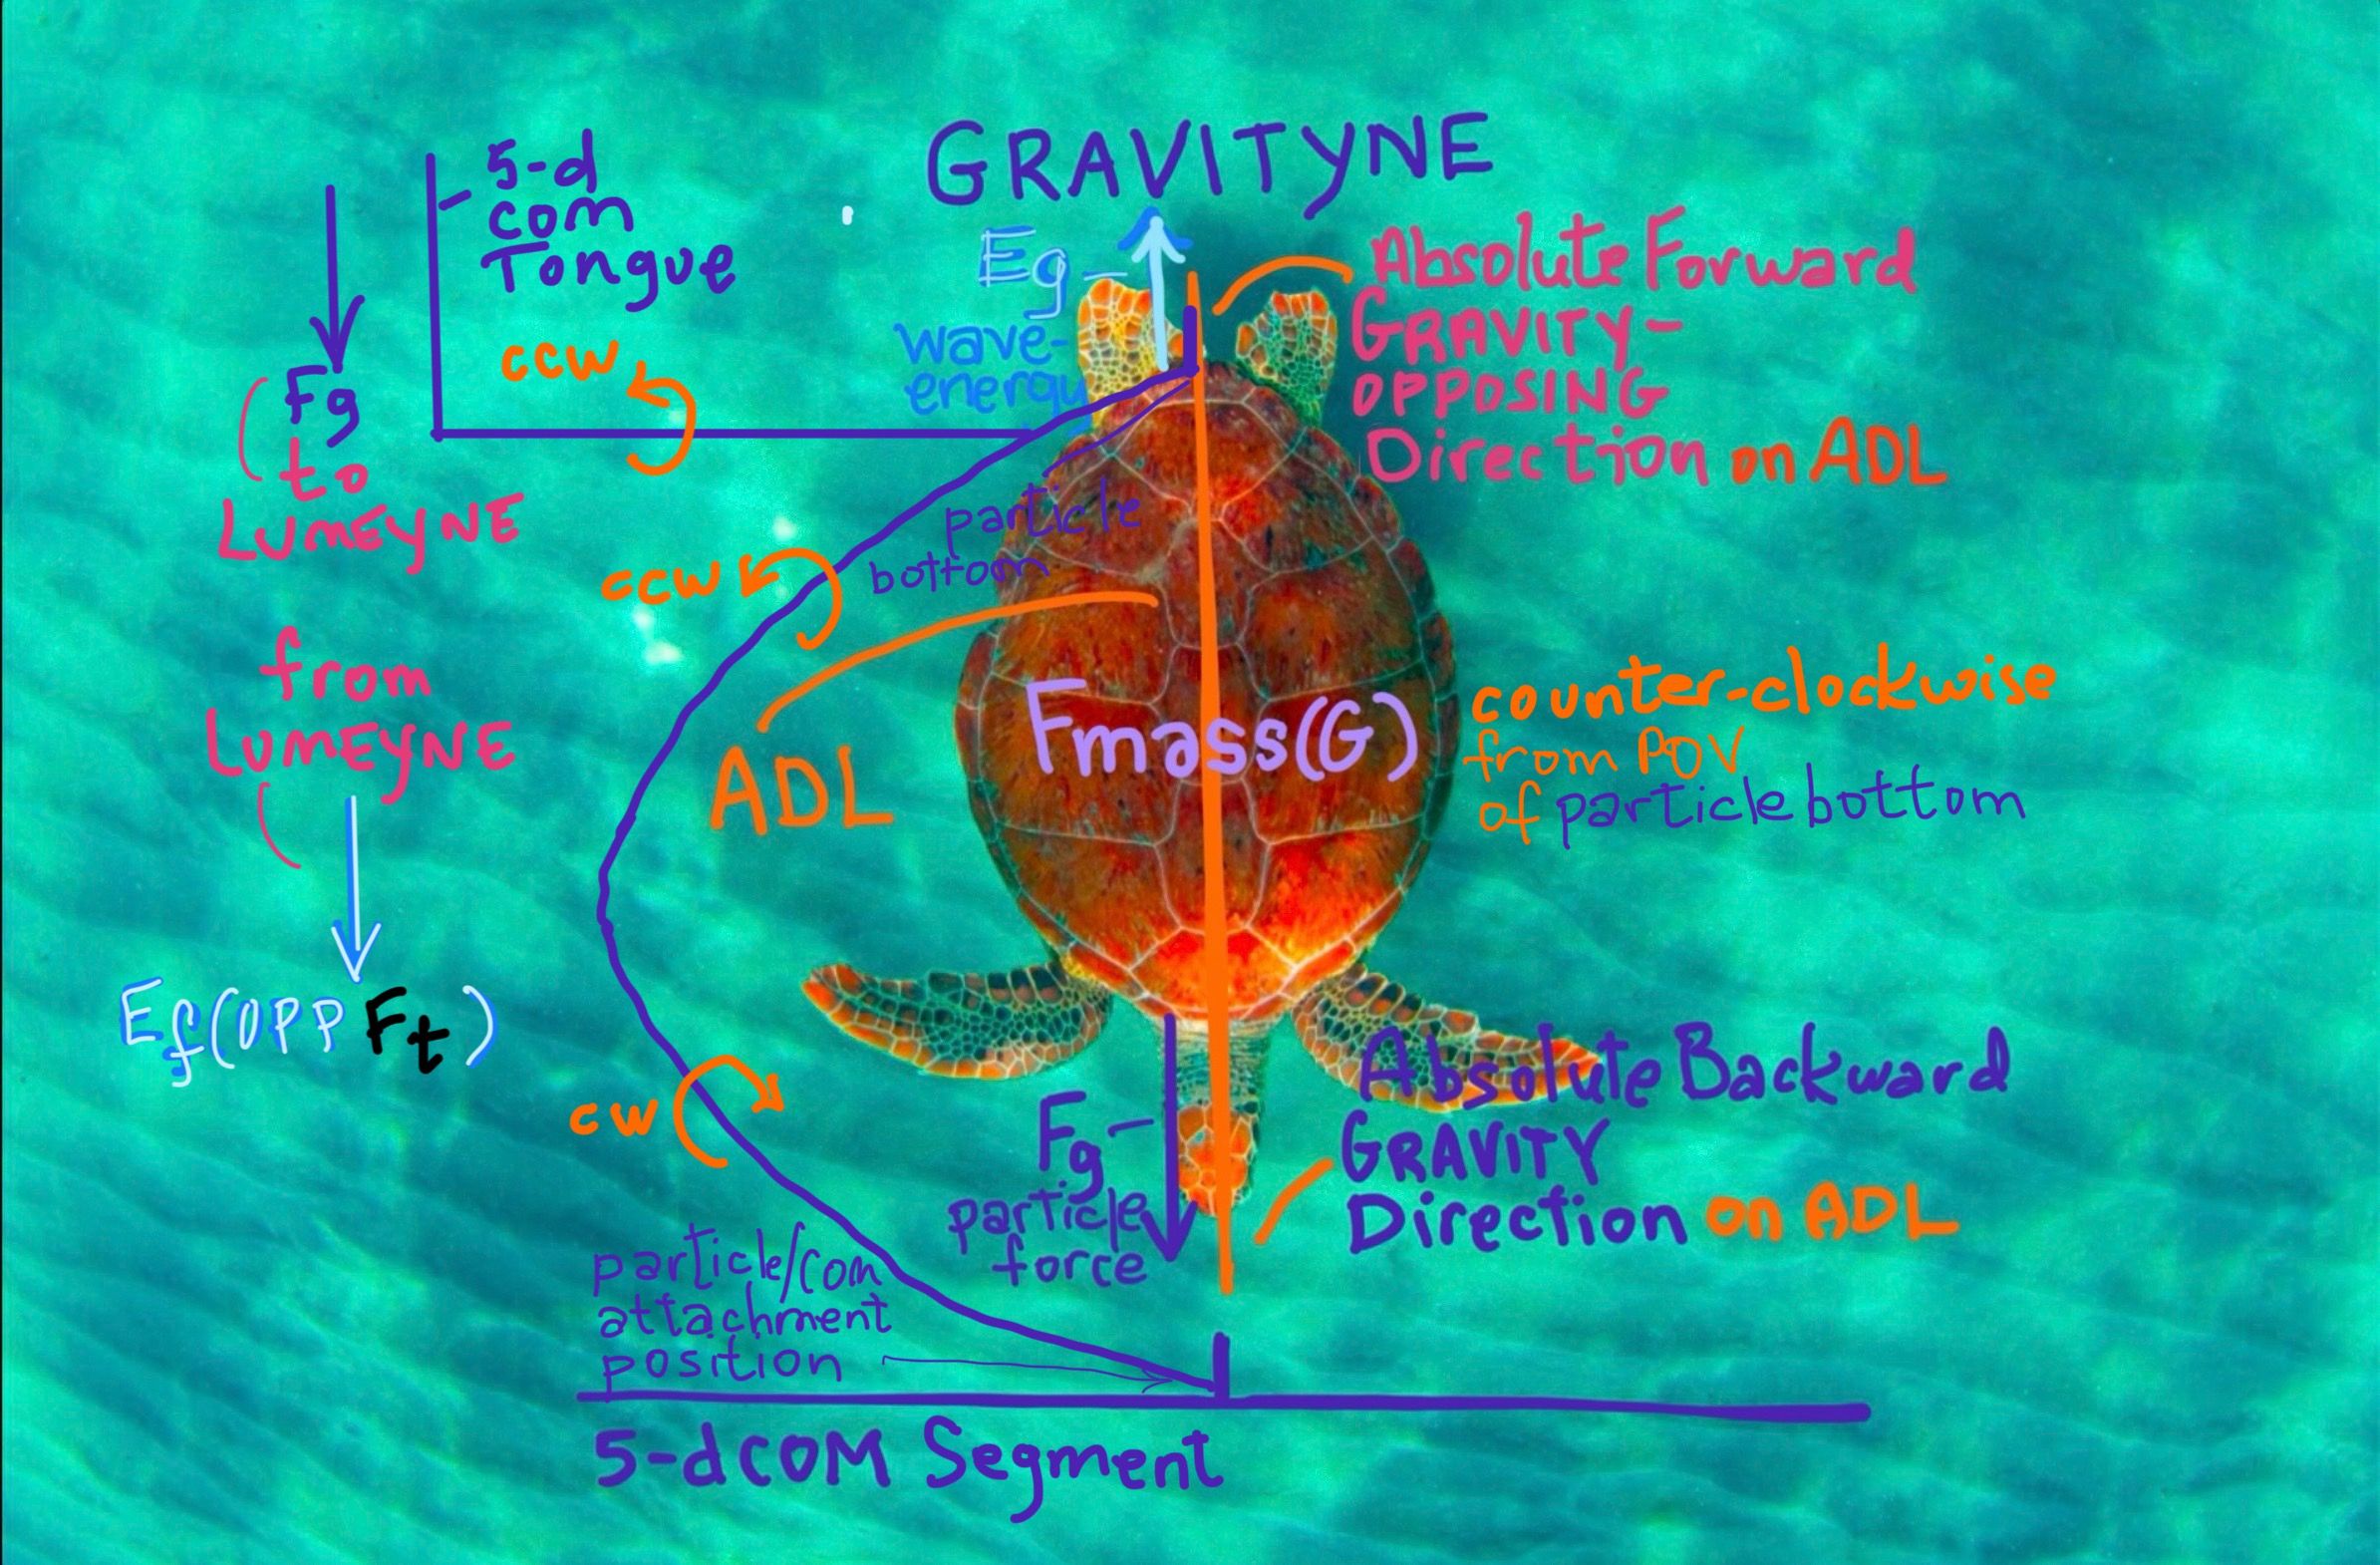 GRAVITYNE
5-d
com
Tongue
Fg
to
LUMEYNE
ccw
Eg
wave-
energy
Absolute Forward
GRAVITY-
OPPOSING
Direction on ADL
particle
bottom
ccw
from
LUMEYNE
ADL
Fmass(G)
counter-clockwise
from POV
of particle bottom
Ef(OPP Ft)
cw
Fg
particle
force
Absolute Backward
GRAVITY
Direction on ADL
particle/com
attachment
position
5-d COM Segment